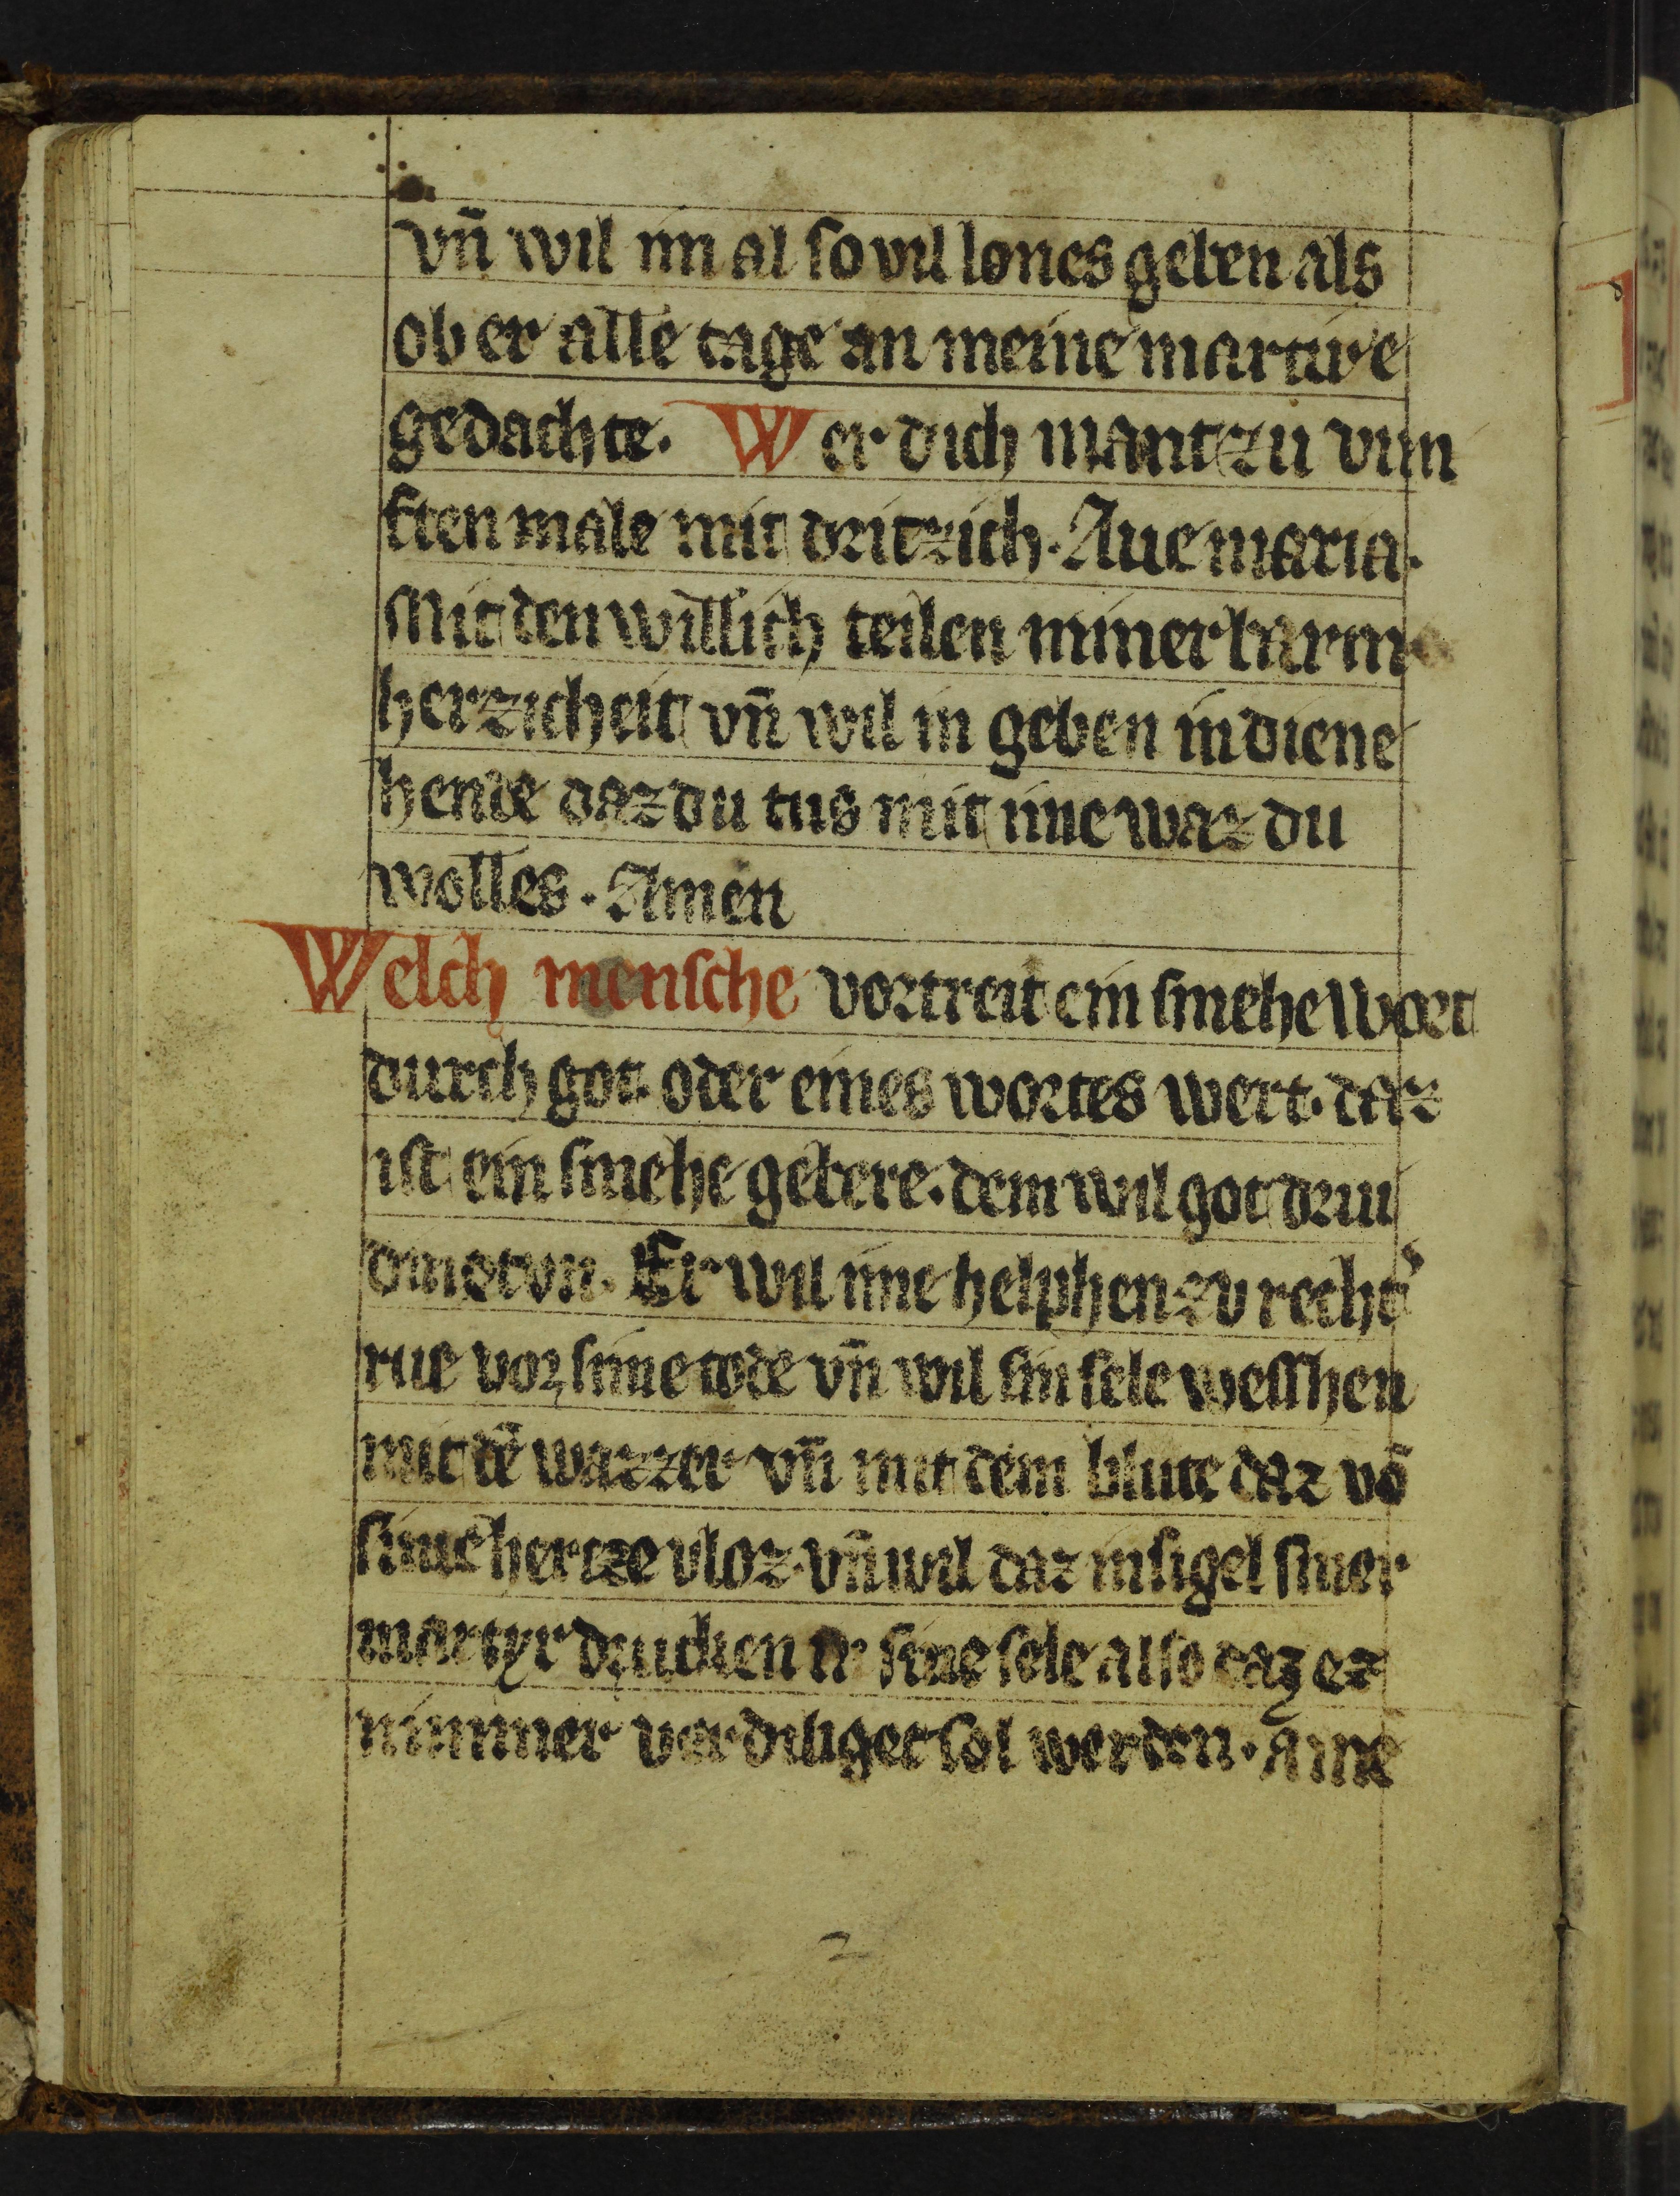 vn̄ wil im al so vil lones geben als
ob er alle tage an meine martire
gedachte. Wer dich mant zu vun
ften male mit dritzich. Aue maria.
Mit den wil ich teilen miner barme
herzicheit vn̄ wil in geben in diene
hende daz du tus mit ime waz du
wolles. Amen
Welch mensche vortreit ein smehe wort
durch got. oder eines wortes wert. daz
ist ein smehe gebere. dem wil got driu
dinge tvn. Er wil ime helphen zv rechtˀ
rue vor sime tode vn̄ wil sin sele wesshen
mit dē wazzer vn̄ mit dem blute daz vō
sime hertze vloz. vn̄ wil daz insigel siner
martyr drucken in sine sele also daz ez
nimmer verdiliget sol werden. Ame